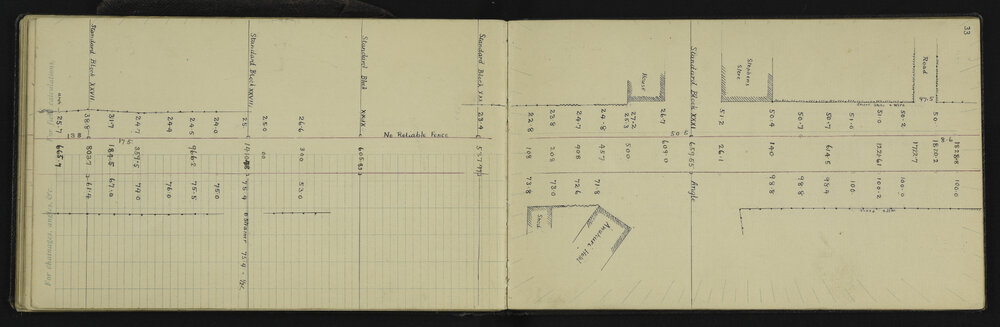 33
Standard Block XXVII
Standard Block XXVIII
Standard Block XXIX
Standard Block XXX
Standard Block XXXI
Angle
House
Stephens
Store
Road
47.5
25.7
38.8
31.7
24.7
24.4
24.5
24.0
25.0
26.6
23.4
22.8
23.8
24.7
24.8
27.2
25.3
26.7
51.2
50.4
50.7
50.7
51.0
51.0
50.2
50.
138
17.5
No Reliable Fence
50.5
8.6
665.7
803.7
184.5
359.5
966.2
300
605.93
108
208
408
457
500
609.0
657.55
26.1
140
614.5
1721.61
1722.7
1820.2
1828.8
61.4
67.0
74.0
76.0
75.5
75.0
75.4
53.0
73.8
73.0
72.6
71.8
98.8
98.8
98.4
100.
100.2
100.0
100.0
Strainer 75.4
Shed
For Chainages, angles, &c.